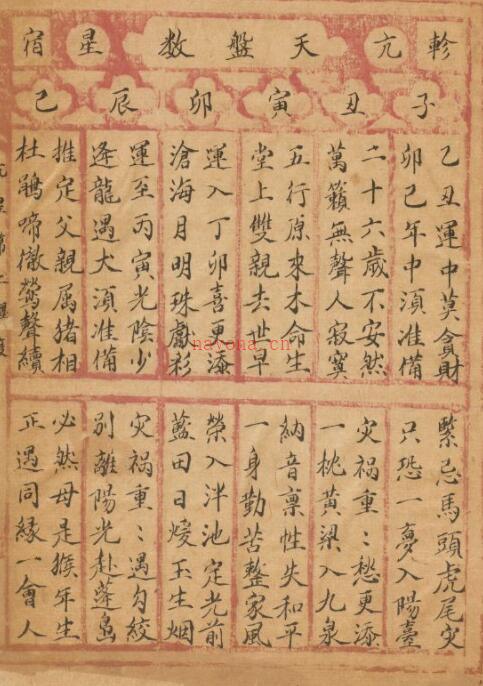 軫亢天盤數星宿
子丑寅卯辰己
乙丑運中莫貪財
卯己年中湏准備
緊忌馬頭虎尾灾
只恐一夢入陽臺
二十六歲不安然
萬籟無聲人寂寞
灾禍重〻愁更添
一桃黄梁入九泉
五行原來木命生
堂上雙親去世早
納音禀性失和平
一身勤苦整家風
運入丁卯喜更添
滄海月明珠獻彩
榮入泮池定光前
藍田日煖玉生烟
運至丙寅光陰少
逢龍遇犬湏准備
灾祸重〻遇勾絞
别離陽光赴蓬島
推定父親属猪相
杜鵑啼徹鶯聲續
必然母是猴年生
正遇同縁一會人
nayona.cn